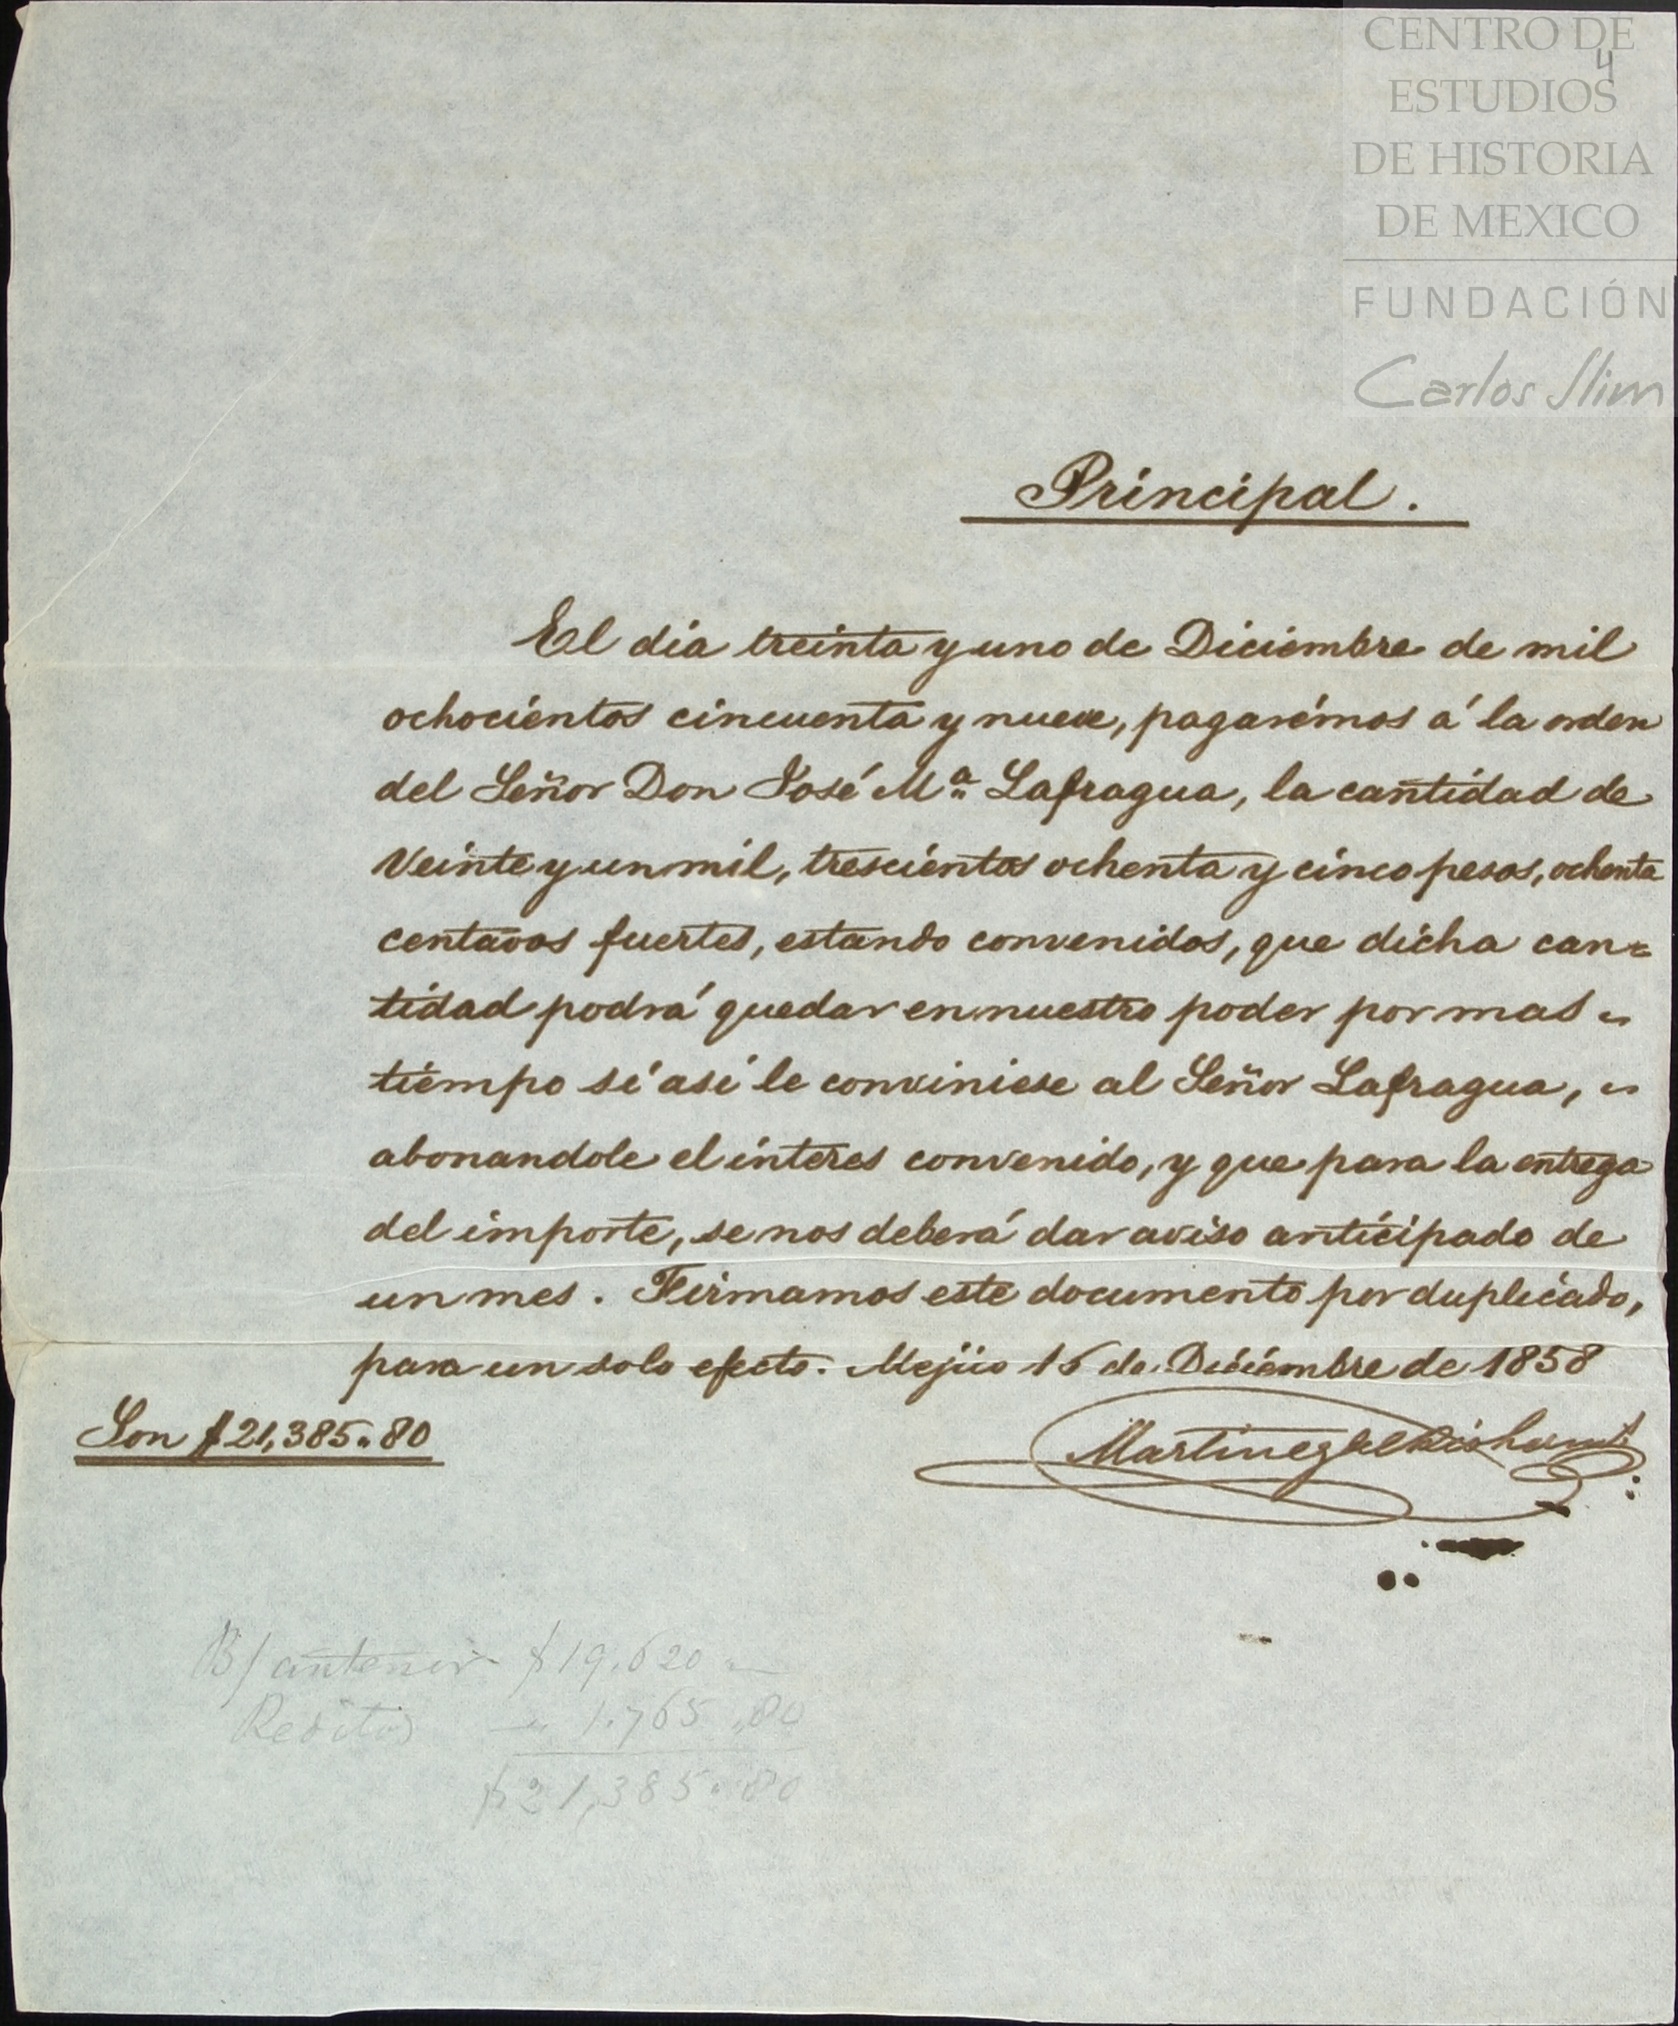 CENTRO DE
4
ESTUDIOS
DE HISTORIA
DE MEXICO
FUNDACIÓN
Carlos Slim
Principal.
El dia treinta y uno de Diciembre de mil
ochocientos cincuenta y nueve, pagarémos á la orden
del Señor Don José Mª Lafragua, la cantidad de
Veinte y un mil, trescientos ochenta y cinco pesos, ochenta
centavos fuertes, estando convenidos, que dicha can=
tidad podrá quedar en nuestro poder por mas
tiempo sí así le conviniese al Señor Lafragua,
abonandole el ínteres convenido, y que para la entrega
del importe, se nos deberá dar aviso anticipado de
un mes. Firmamos este documento por duplicado,
para un solo efecto. Mejico 16 de Diciembre de 1858
Son $21,385.80
Martinez del Rio herms
B/ anterior $19.620
Reditos 1.765.80
$21,385.80